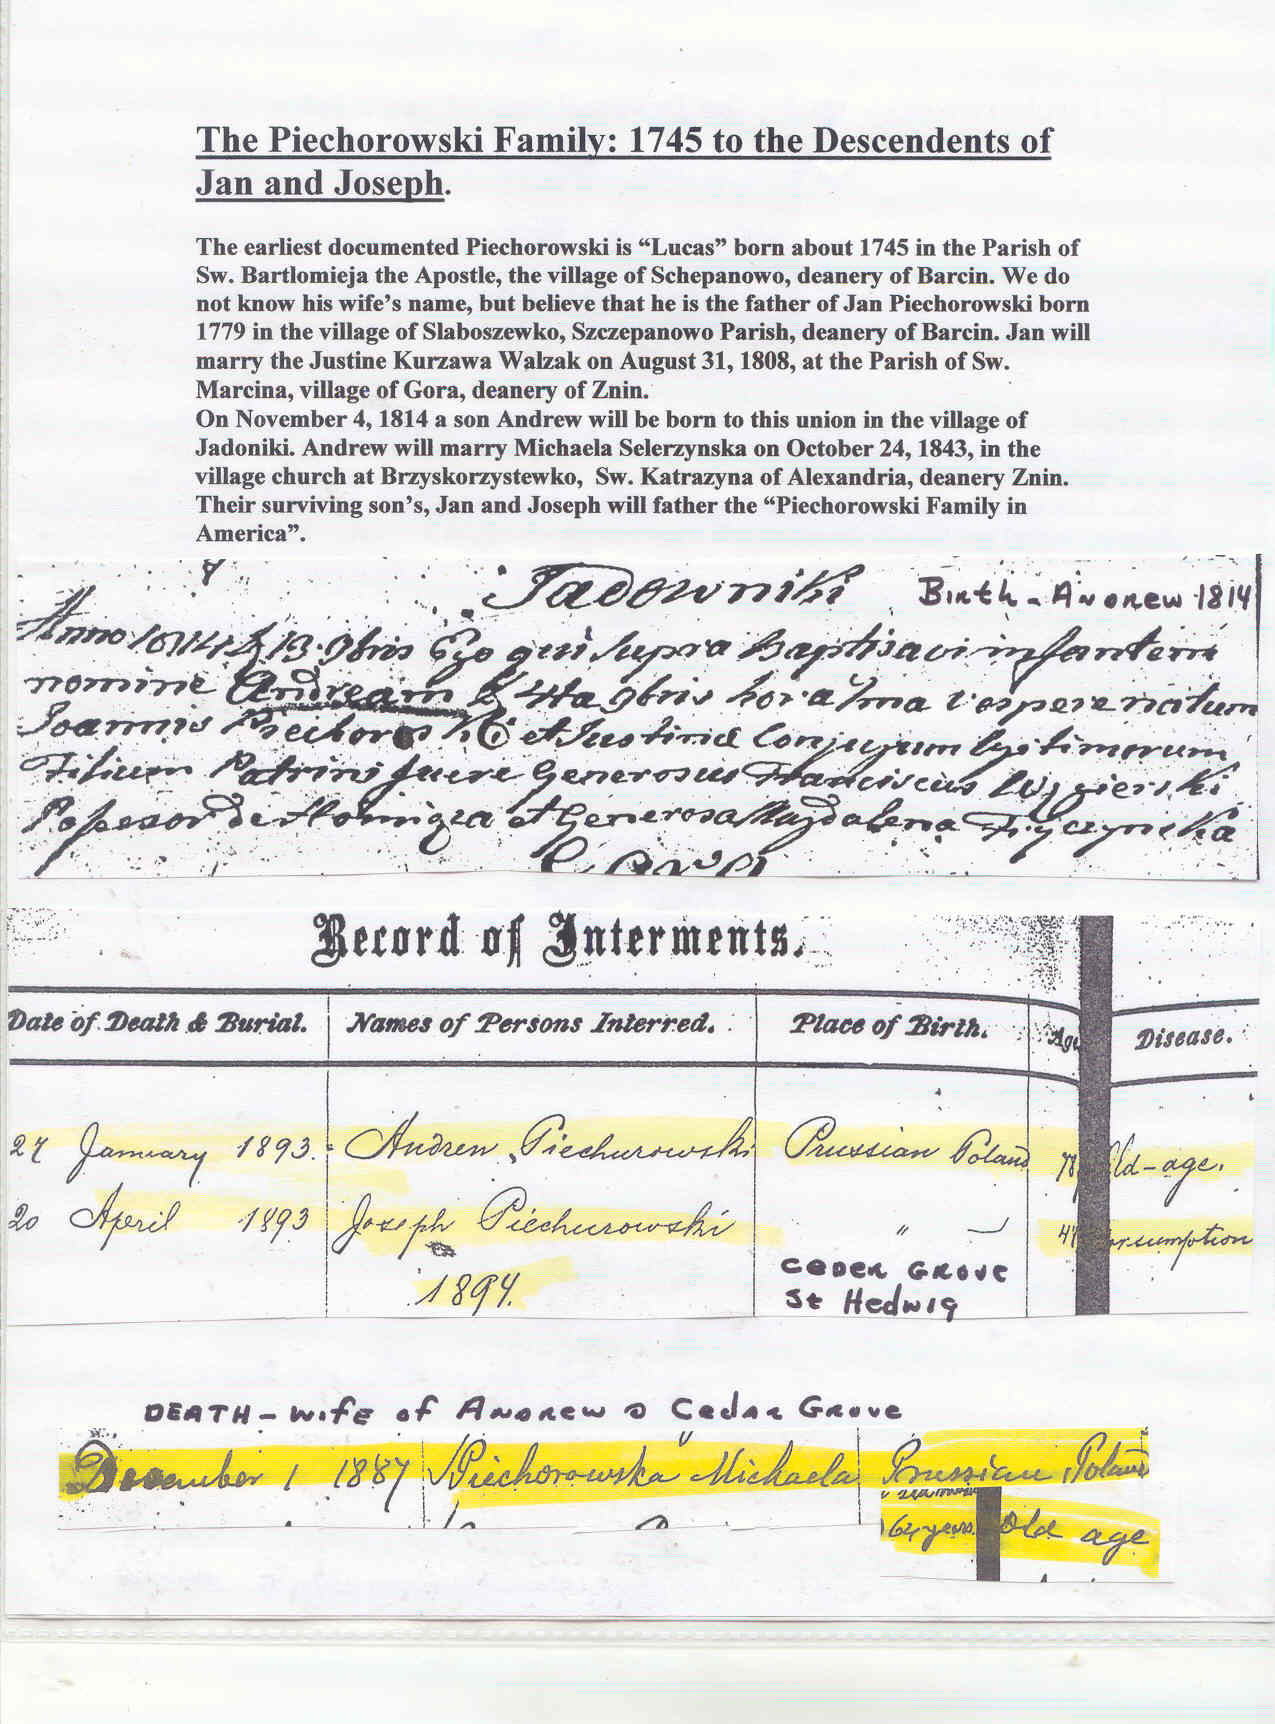 The Piechorowski Family: 1745 to the Descendents of
Jan and Joseph.
The earliest documented Piechorowski is “Lucas” born about 1745 in the Parish of
Sw. Bartlomieja the Apostle, the village of Schepanowo, deanery of Barcin. We do
not know his wife’s name, but believe that he is the father of Jan Piechorowski born
1779 in the village of Slaboszewko, Szczepanowo Parish, deanery of Barcin. Jan will
marry the Justine Kurzawa Walzak on August 31, 1808, at the Parish of Sw.
Marcina, village of Gora, deanery of Znin.
On November 4, 1814 a son Andrew will be born to this union in the village of
Jadoniki. Andrew will marry Michaela Selerzynska on October 24, 1843, in the
village church at Brzyskorzystewko, Sw. Katrazyna of Alexandria, deanery Znin.
Their surviving son’s, Jan and Joseph will father the “Piechorowski Family in
America”.
Jadowniki Birth - Andrew 1814
Anno 13 9bris Ego qui supra Baptisavi infantem
nomine Andream 4ta 9bris hora Vespere natum
Joannis et Justina Conjugum legitimorum
Filium Patrini fuere Generosus Franciscus
Possesor de et Generosa Magdalena
Record of Interments.
Date of Death & Burial. Names of Persons Interred. Place of Birth. Age Disease.
27 January 1893. Andrew Piechurowski Prussian Poland 78 Old-age.
20 April 1893 Joseph Piechurowski " 
1894.
Ceder Grove
St Hedwig
DEATH - Wife of Andrew Cedar Grove
December 1 1887 Piechorowska Michaela Prussian Poland
64 years Old age